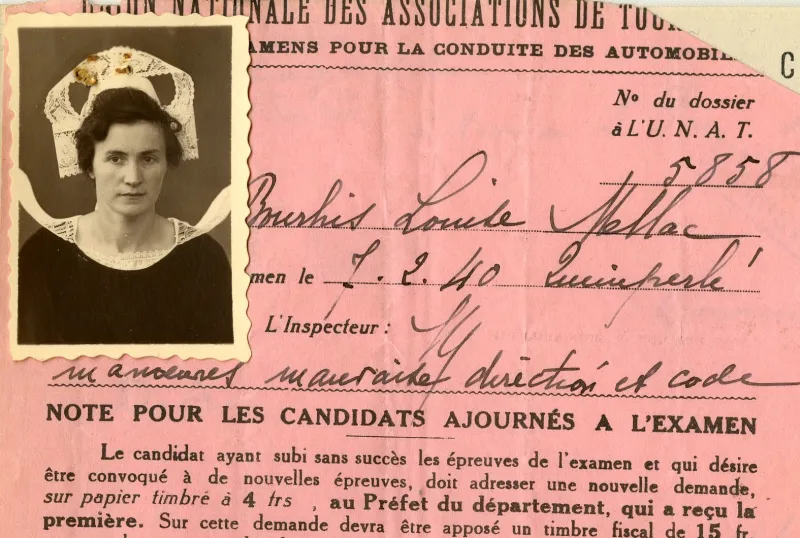 NATIONALE DES ASSOCIATIONS DE
POUR LA CONDUITE DES AUTOMOBIL
C
No du dossier
à L'U. N. A. T.
5858
Bourhis Louise Mellac
men le 7.2.40 Quimperlé
L'Inspecteur :
manoeuvres mauvaises direction et code
NOTE POUR LES CANDIDATS AJOURNÉS A L'EXAMEN
Le candidat ayant subi sans succès les épreuves de l'examen et qui désire
être convoqué à de nouvelles épreuves, doit adresser une nouvelle demande,
sur papier timbré à 4 frs , au Préfet du département, qui a reçu la
première. Sur cette demande devra être apposé un timbre fiscal de 15 fr.